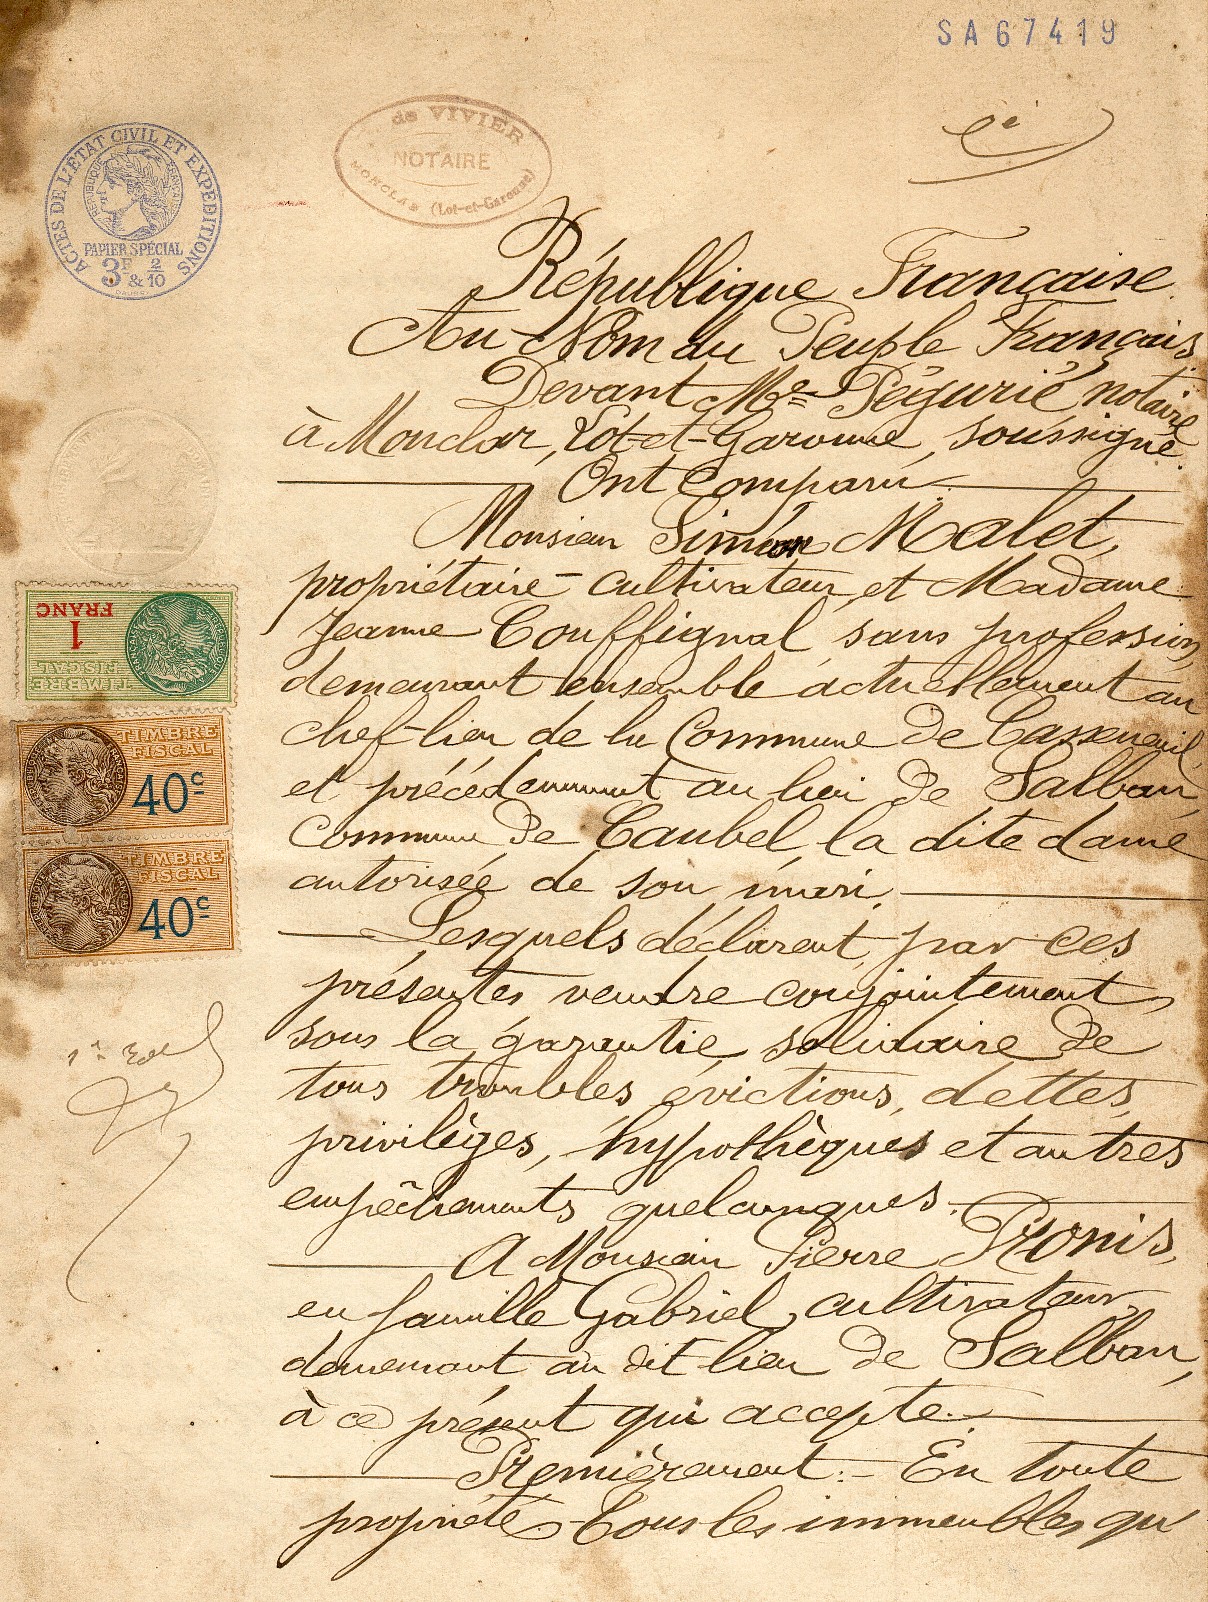 SA67419
de VIVIER
NOTAIRE
MONCLAR (Lot-et-Garonne)
ACTES DE L'ÉTAT CIVIL ET EXPÉDITIONS
RÉPUBLIQUE FRANÇAISE
PAPIER SPÉCIAL
3F & 2/10
République Française
Au Nom du Peuple Français
Devant Me Pégurié notaire
à Monclar, Lot-et-Garonne, soussigné.
Ont Comparu
Monsieur Siméon Malet,
propriétaire-cultivateur, et Madame
Jeanne Couffignal, sans profession,
demeurant ensemble actuellement au
chef-lieu de la Commune de Casseneuil,
et précédemment au lieu de Salban,
commune de Caubel, la dite dame
autorisée de son mari.
Lesquels déclarent, par ces
présentes vendre conjointement,
sous la garantie solidaire de
tous troubles, évictions, dettes,
privilèges, hypothèques et autres
empêchements quelconques.
A Monsieur Pierre Pronis,
en famille Gabriel, cultivateur,
demeurant au dit lieu de Salban,
à ce présent qui accepte.
Premièrement :- En toute
propriété. Tous les immeubles qu'
1 FRANC
TIMBRE FISCAL
TIMBRE FISCAL
40c
TIMBRE FISCAL
40c